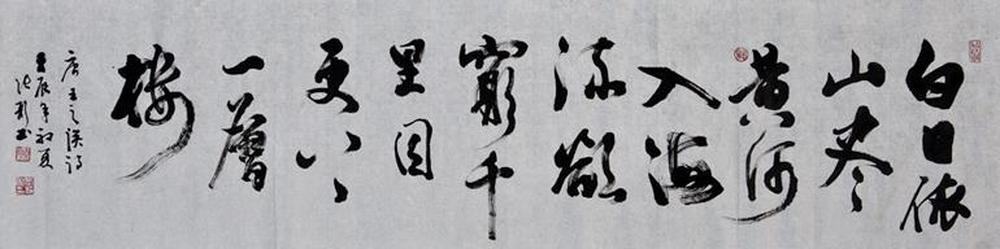 白日依
山尽
黄河
入海
流欲
窮千
里目
更上
一層
楼
唐王之渙詩
壬辰年初夏
书